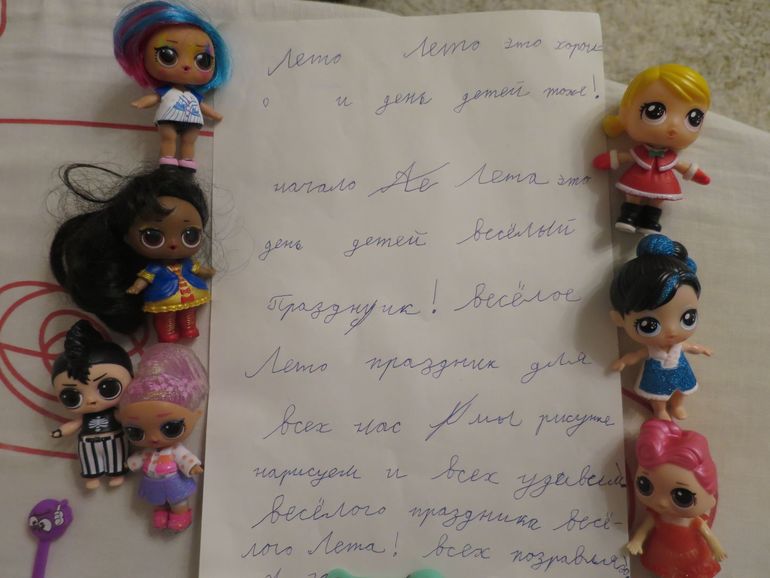 Лето Лето это хорош-
о и день детей тоже!
начало Ле Лета это
день детей весёлый
Праздник! весёлое
Лето праздник для
всех нас мы рисунке
нарисуем и всех удивем
весёлого праздника весё-
лого Лета! всех поздравля